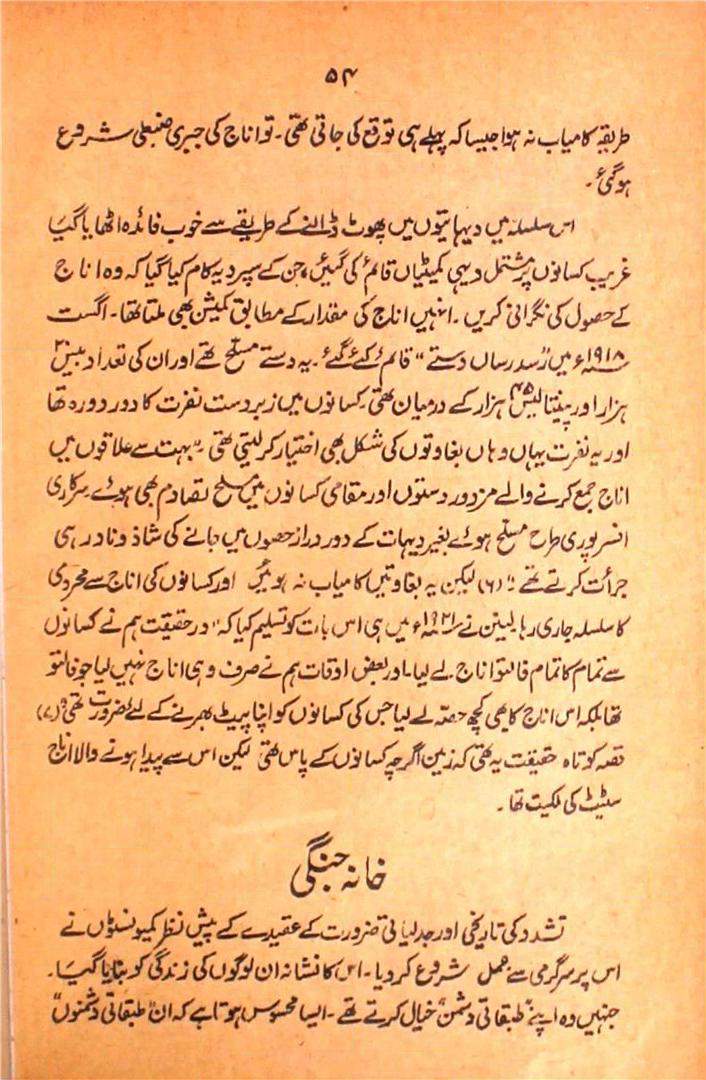 ۵۴
طریقہ کامیاب نہ ہوا جیسا کہ پہلے ہی توقع کی جاتی تھی۔ تو اناج کی جبری ضبطی شروع
ہوگئی۔
اس سلسلہ میں دیہاتیوں میں پھوٹ ڈالنے کے طریقے سے خوب فائدہ اٹھایا گیا
غریب کسانوں پر مشتمل دیہی کمیٹیاں قائم کی گئیں، جن کے سپرد یہ کام کیا گیا کہ وہ اناج
کے حصول کی نگرانی کریں۔ انہیں اناج کی مقدار کے مطابق کمیشن بھی ملتا تھا۔ اگست
۱۹۱۸ء میں "رسد رساں دستے" قائم کئے گئے۔ یہ دستے مسلح تھے اور ان کی تعداد بیس ۲۰
ہزار اور پینتالیس ۴۵ ہزار کے درمیان تھی۔ کسانوں میں زبردست نفرت کا دور دورہ تھا
اور یہ نفرت یہاں وہاں بغاوتوں کی شکل بھی اختیار کر لیتی تھی۔ "بہت سے علاقوں میں
اناج جمع کرنے والے مزدور دستوں اور مقامی کسانوں میں مسلح تصادم بھی ہوئے۔ سرکاری
افسر پوری طرح مسلح ہوئے بغیر دیہات کے دور دراز حصوں میں جانے کی شاذ و نادر ہی
جرأت کرتے تھے۔" (۶) لیکن یہ بغاوتیں کامیاب نہ ہوئیں اور کسانوں کی اناج سے محرومی
کا سلسلہ جاری رہا۔ لینن نے ۱۹۲۱ء میں ہی اس بات کو تسلیم کیا کہ "درحقیقت ہم نے کسانوں
سے تمام کا تمام فالتو اناج لے لیا۔ اور بعض اوقات ہم نے صرف وہی اناج نہیں لیا جو فالتو
تھا بلکہ اس اناج کا بھی کچھ حصہ لے لیا جس کی کسانوں کو اپنا پیٹ بھرنے کے لئے ضرورت تھی" (۷)
قصہ کوتاہ حقیقت یہ تھی کہ زمین اگرچہ کسانوں کے پاس تھی لیکن اس سے پیدا ہونے والا اناج
سٹیٹ کی ملکیت تھا۔
خانہ جنگی
تشدد کی تاریخی اور جدلیاتی ضرورت کے عقیدے کے پیش نظر کمیونسٹوں نے
اس پر سرگرمی سے عمل شروع کر دیا۔ اس کا نشانہ ان لوگوں کی زندگی کو بنایا گیا۔
جنہیں وہ اپنے "طبقاتی دشمن" خیال کرتے تھے۔ ایسا محسوس ہوتا ہے کہ ان "طبقاتی دشمنوں"